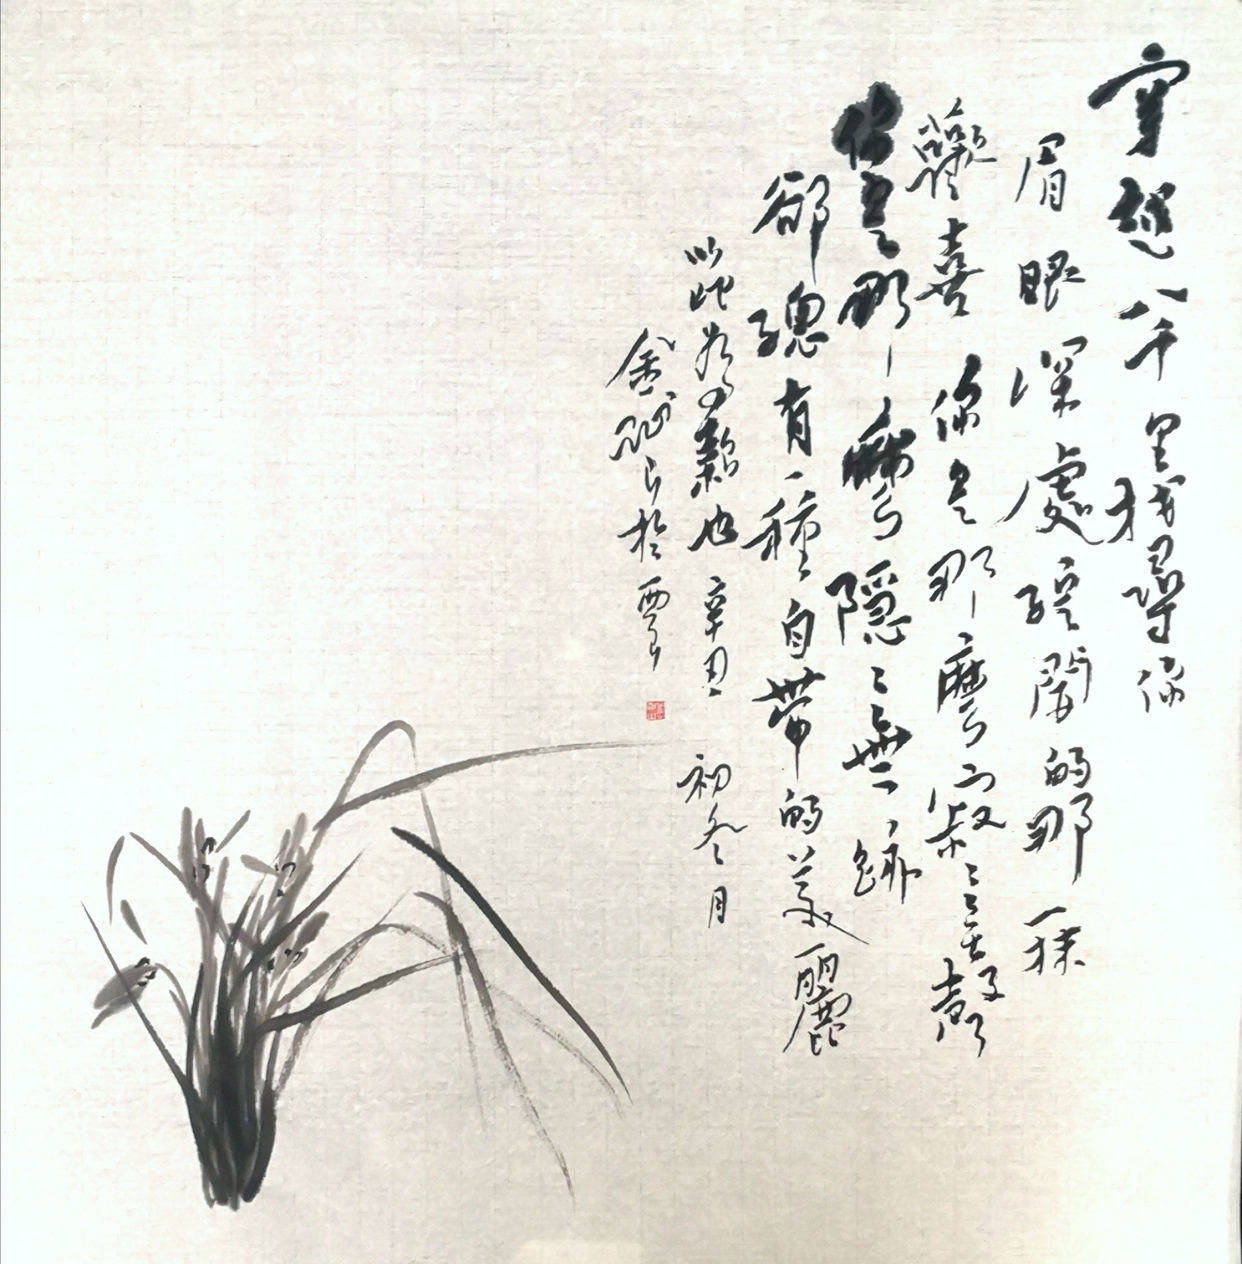 穿越八千里我尋你
眉眼深處綻開的那一抹
歡喜你是那麼的寂寂無聲
你是那麼隱隱無跡
卻總有一種自帶的美麗
以此為題也辛丑初冬月
於